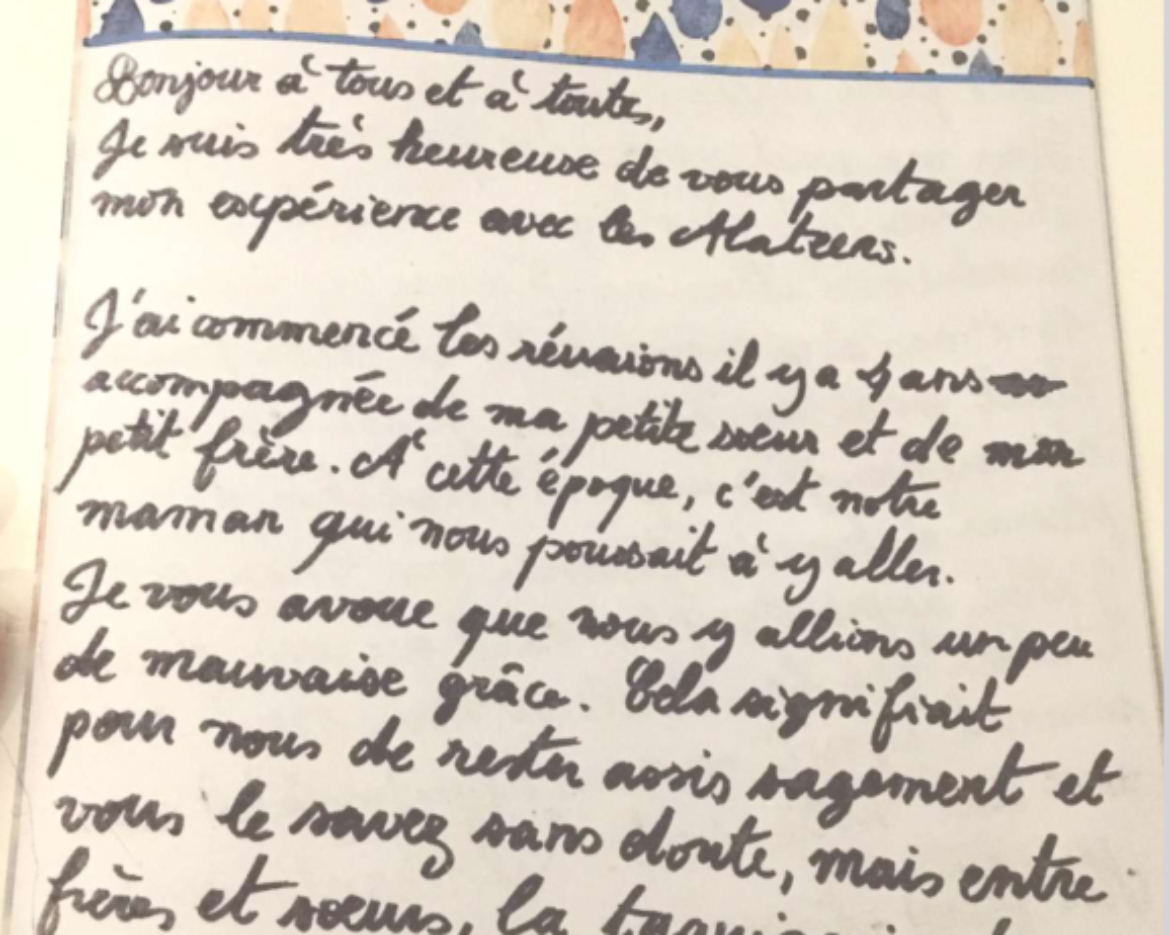 Bonjour à tous et à toute,
Je suis très heureuse de vous partager
mon expérience avec les Alateens.
J'ai commencé les réunions il y a 4 ans
accompagnée de ma petite sœur et de mon
petit frère. A cette époque, c'est notre
maman qui nous poussait à y aller.
Je vous avoue que nous y allions un peu
de mauvaise grâce. Cela signifiait
pour nous de rester assis sagement et
vous le savez sans doute, mais entre
frères et sœurs, la